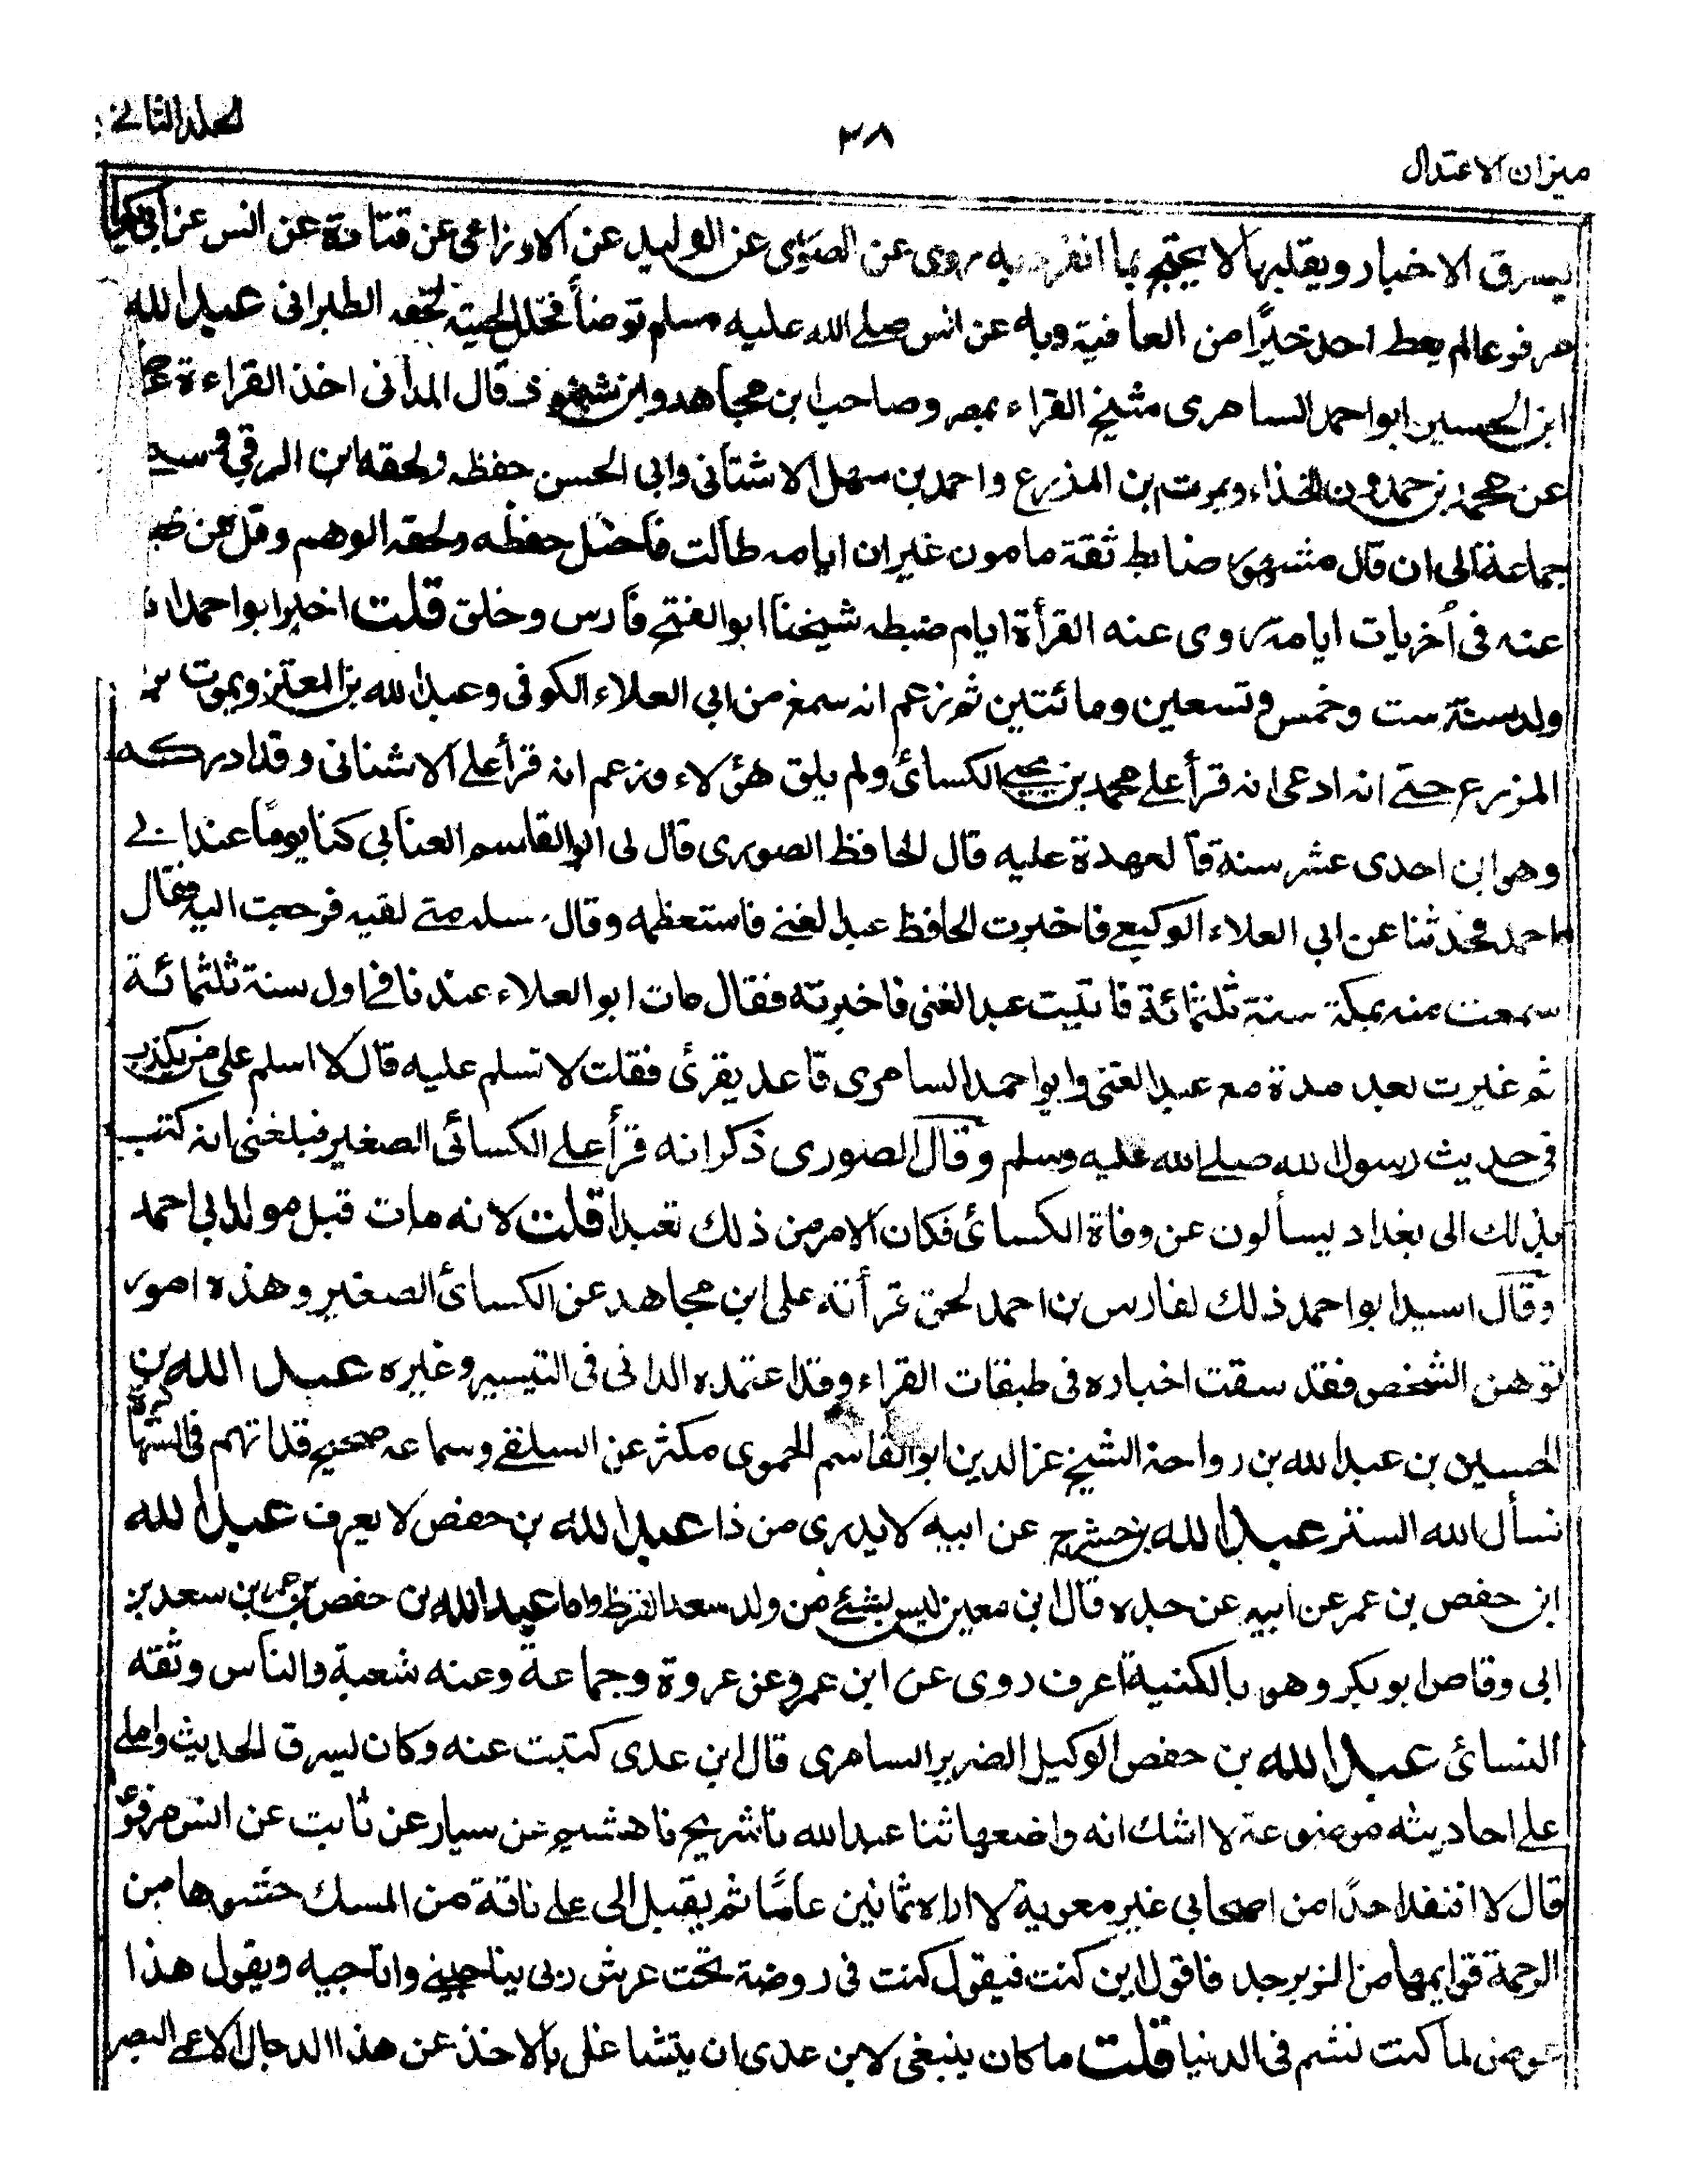 المجلد الثانى
٣٨
ميزان الاعتدال
يسرق الاخبار ويقلبها لا يحتج بما انفرد به روى عن الصورى عن الوليد عن الاوزاعى عن قتادة عن انس عن ابى بكر
مرفوعا لم يعط احد خيرًا من العافية وبه عن انس صلے الله عليه وسلم توضأ فخلل لحيته لحقه الطبرانى عبد الله
ابن الحسين ابو احمد السامرى مشيخ القراء بمصر وصاحب ابن مجاهد وابن شنبوذ قال الدانى اخذ القراءة
عن محمد بن حمدون الحذاء ويموت بن المذرع واحمد بن سهل الاشنانى وابى الحسن حفظه ولحقه ابن الرقى
جماعة الى ان قال مشهور ضابط ثقة مامون غير ان ايامه طالت فاختل حفظه ولحقه الوهم وقل من
عنه فى أخريات ايامه روى عنه القرأة ايام ضبطه شيخنا ابو الفتح فارس وخلق قلت اخبر ابو احمد انه
ولد سنة ست وخمس وتسعين ومائتين ثم زعم انه سمع من ابى العلاء الكوفى وعبد الله بن المعتز ويموت بن
المزرع حتے انه ادعى انه قرأ علے محمد بن يحيے الكسائى ولم يلق هؤلاء وزعم انه قرأ علے الاشنانى وقد ادركه
وهو ابن احدى عشر سنة فالعهدة عليه قال الحافظ الصورى قال لى ابو القاسم العنابى كنا يومًا عند ابے
احمد فحدثنا عن ابى العلاء الوكيعے فاخبرت الحافظ عبد الغنے فاستعظمه وقال سله متے لقيه فرجعت اليه فقال
سمعت منه بمكة سنة ثلثمائة فاتيت عبد الغنى فاخبرته فقال مات ابو العلاء عندنا فى اول سنة ثلثمائة
ثم غبرت بعد مدة مع عبد الغنى وابو احمد السامرى قاعد يقرئ فقلت لا تسلم عليه قال لا اسلم على من يكذب
فى حديث رسول الله صلے الله عليه وسلم وقال الصورى ذكر انه قرأ علے الكسائى الصغير فبلغنى انه كتب
بذلك الى بغداد يسألون عن وفاة الكسائى فكان الامر من ذلك تعبدا قلت لانه مات قبل مولد ابى احمد
وقال اسيد ابو احمد ذلك لفارس بن احمد لحق قرأته على ابن مجاهد عن الكسائى الصغير وهذه امور
توهن الشخص فقد سقت اخباره فى طبقات القراء وقد اعتمده الدانى فى التيسير وغيره عبد الله بن
الحسين بن عبد الله بن رواحة الشيخ عز الدين ابو القاسم الحموى مكثر عن السلفے وسماعه صحيح قد اتهم فى الشهادة
نسأل الله الستر عبد الله بن حشرج عن ابيه لا يدرى من ذا عبد الله بن حفص لا يعرف عبد الله
ابن حفص بن عمر عن ابيه عن جده قال ابن معين ليس بشئے من ولد سعد القرظ واما عبد الله بن حفص بن عمر بن سعد بن
ابى وقاص ابو بكر وهو بالكنية اعرف روى عن ابن عمر وعن عروة وجماعة وعنه شعبة والناس وثقه
النسائى عبد الله بن حفص الوكيل الضرير السامرى قال ابن عدى كتبت عنه وكان يسرق الحديث واملے
علے احاديثه موضوعة لا اشك انه واضعها ثنا عبد الله نا شريح نا هشيم عن سيار عن ثابت عن انس مرفوعا
قال لا افتقد احدًا من اصحابى غير معوية لا اراه ثمانين عامًا ثم يقبل الى علے ناقة من المسك حشوها من
الرحمة قوايمها من الزبرجد فاقول اين كنت فيقول كنت فى روضة تحت عرش ربى يناجينے واناجيه ويقول هذا
عوض لما كنت تشتم فى الدنيا قلت ما كان ينبغى لابن عدى ان يتشاغل بالاخذ عن هذا الدجال الاعمے البصر